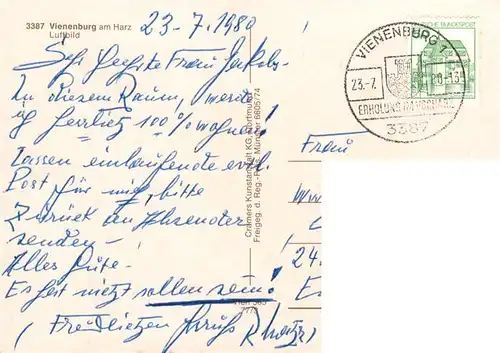 3387 Vienenburg am Harz
Luftbild
23-7.1980
Sehr geehrte Frau Jakoby-
In diesem Raum, werde
ich 100% wohnen!
Lassen einlaufende evtl.
Post für mich, bitte
Zurück an Absender
senden-
Alles Gute-
Es hat nicht sollen sein!
(Freundlichen Gruß
Cramers Kunstanstalt KG, Dortmund
Freigeg. d. Reg.-Präs. Münster 6605/74
DEUTSCHE BUNDESPOST
VIENENBURG 1
23.-7.
3387
Frau
24.